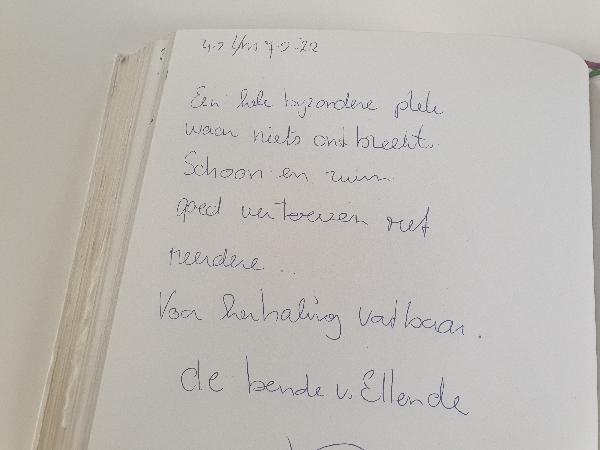 4-2 t/m 7-2-22
Een hele byzondere plek
waar niets ontbreekt.
Schoon en ruim
goed vertoeven met
meerdere..
Voor herhaling vatbaar.
de bende v. Ellende